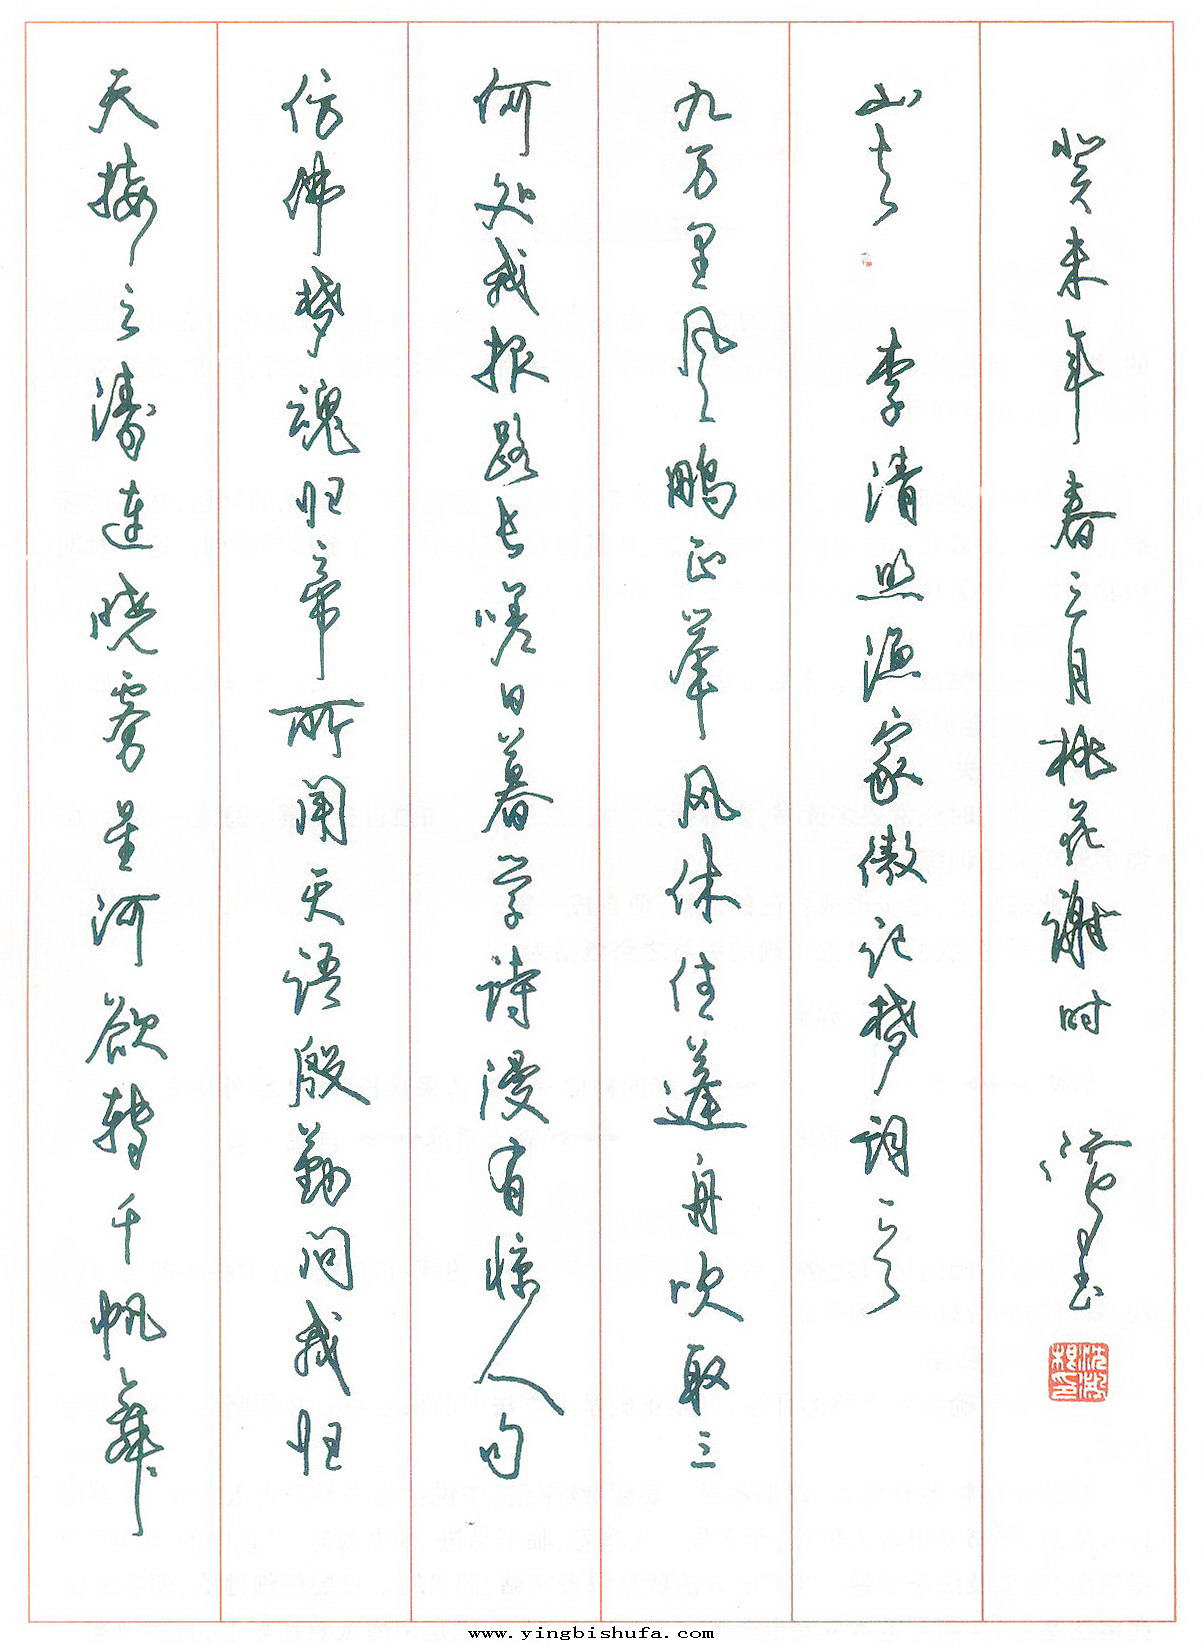 天接云涛连晓雾星河欲转千帆舞
仿佛梦魂归帝所闻天语殷勤问我归
何处我报路长嗟日暮学诗漫有惊人句
九万里风鹏正举风休住蓬舟吹取三
山去 李清照渔家傲记梦词一首
癸未年春三月桃花谢时
沈鸿根印
www.yingbishufa.com